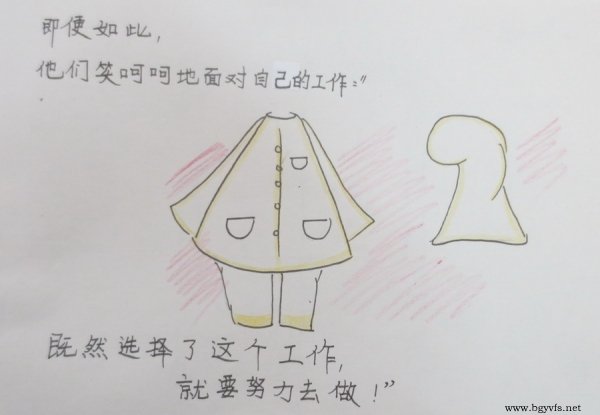 即便如此,
他们笑呵呵地面对自己的工作:"
既然选择了这个工作,
就要努力去做!"
www.bgyvfs.net